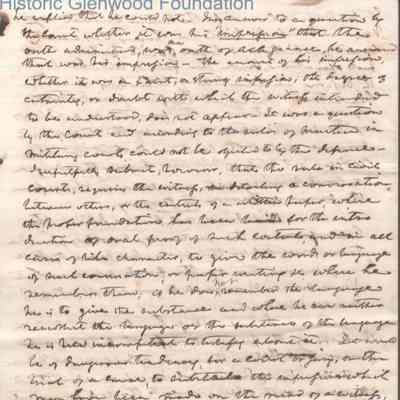 Historic Glenwood Foundation
he replied that he could not. In answer to a question by
the Court whether it was his impression that the
oath administered, was an oath of allegiance, he answered
that was his impression - The amount of his impression,
whether it was a faint, or strong impression, the degree of
certainty, or doubt with which the witness intended
to be understood, does not appear. It was a question
by the Court and according to the rules of practice in
Military Courts could not be objected to by the defence -
respectfully submit, however, that the rule in civil
Courts, requires the witness, in detailing a conversation
between others, or the contents of a written paper, where
the proper foundation has been laid for the intro
duction of oral proof of such contents, and in all
cases of like character, to give the words or language
of such conversation, or paper writing where he
remembers them, if he does not remember the language
he is to give the substance and where he can neither
recollect the language or the substance of the language
he is held incompetent to testify about it. It would
be of dangerous tendency, for a court or jury, on the
trial of a cause, to the impression which
may have been made on the mind of a witness,